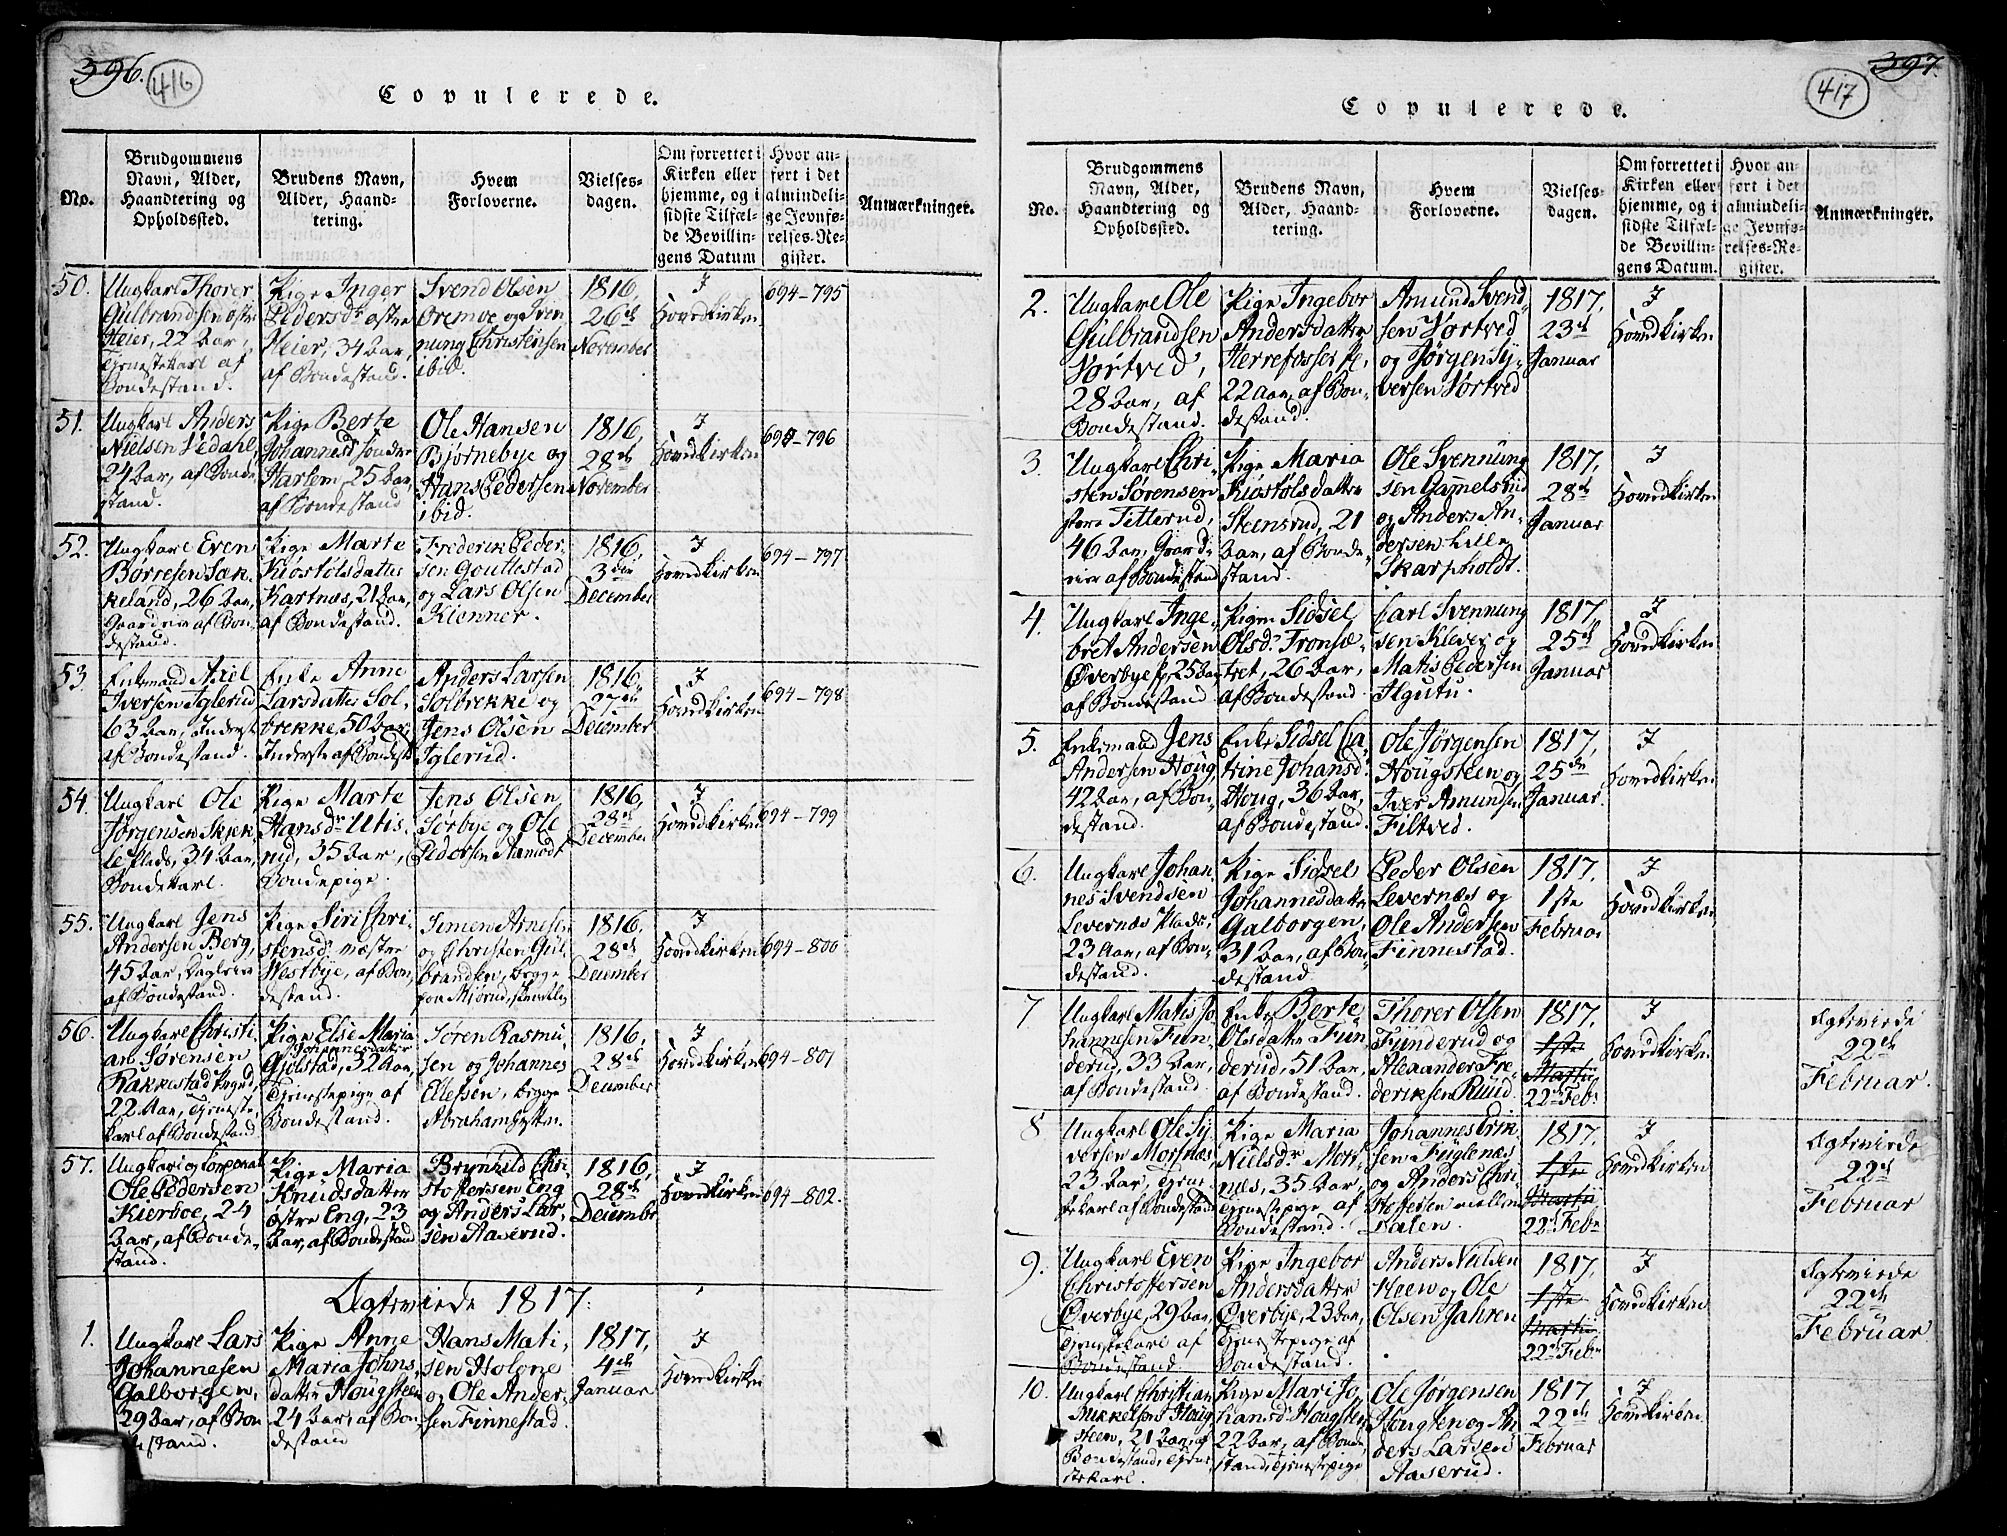 396.
416
Copulerede.
No.
Brudgommens
Navn, Alder,
Haandtering og
Opholdssted.
Brudens Navn,
Alder, Haand-
tering.
Hvem
Forloverne.
Vielses-
dagen.
Om forrettet i
Kirken eller
hjemme, og i
sidste Tilfæl-
de Bevillin-
gens Datum
Hvor an-
ført i det
almindeli-
ge Jevnfø-
relses-Re-
gister.
Anmærkninger.
50.
Ungkarl Thorer
Gulbrandsen østre
Heier, 22 Aar,
Tjenestekarl af
Bondestand.
Pige Inger
Pedersdr østre
Heier, 34 Aar,
af Bondestand.
Svend Olsen
Oremoe og Sven
nung Christensen
ibid.
1816,
26de
November
I
Hovedkirken
694-795
51.
Ungkarl Anders
Nielsen Vedahl,
24 Aar, af Bonde
stand.
Pige Berte
Johannesd. søndre
Harlem, 25 Aar,
af Bondestand
Ole Hansen
Bjørnebye og
Hans Pedersen
ibid.
1816,
28de
November
I
Hovedkirken
694-796
52.
Ungkarl Even
Børresen Sæk-
keland, 26 Aar,
Gaardeier af Bon-
destand.
Pige Marte
Kiøstølsdatter
Kartnæs, 21 Aar,
af Bondestand.
Frederik Peder-
sen Gouttestad
og Lars Olsen
Kienner.
1816,
3die
December
I
Hovedkirken
694-797
53
Enkemand Axel
Iversen Iglerud
63 Aar, Inderst
af Bondestand.
Enke Anne
Larsdatter Sol-
brekke, 50 Aar,
Inderste af Bondest
Anders Larsen
Solbrekke og
Jens Olsen
Iglerud.
1816,
27de
December
I
Hovedkirken
694-798
54.
Ungkarl Ole
Jørgensen Skjek-
le Plads, 34 Aar,
Bondekarl.
Pige Marte
Hansdr Utis-
rud, 35 Aar,
Bondepige.
Jens Olsen
Sørbye og Ole
Pedersen Aamodt
1816,
28de
December
I
Hovedkirken
694-799
55.
Ungkarl Jens
Andersen Berg,
45 Aar, Dagleier
af Bondestand.
Pige Siri Chri-
stensdr. væstre
Westbye, af Bon-
destand.
Simen Arnesen
og Christen Gul-
brandsen, begge
1816,
28de
December
I
Hovedkirken
694-800
56.
Ungkarl Christi-
an Sørensen
Rakkestad
22 Aar, Tjeneste-
karl af Bondestand
Pige Else Maria
Johannesdatter
Gjølstad, 32 Aar,
Tjenestepige af
Bondestand.
Søren Rasmu-
sen og Johannes
Ellefsen, begge
1816,
28de
December
I
Hovedkirken
694-801
57.
Ungkarl og Korporal
Ole Pedersen
Kierboe, 24
Aar, af Bonde-
stand.
Pige Maria
Knudsdatter
østre Eng, 23
Aar, af Bondestand
Brynhild Chri-
stoffersen Eng
og Anders Lar-
sen Aaserud.
1816,
28de
December
I
Hovedkirken
694-802.
Ægteviede 1817:
1.
Ungkarl Lars
Johannesen
Galborgen,
29 Aar, af Bon
destand.
Pige Anne
Maria Johns-
datter Hougsteen
24 Aar, af Bon-
destand
Hans Mati-
sen Holone
og Ole Ander-
sen Finnestad.
1817,
4de
Januar
I
Hovedkirken
397.
417
Copulerede.
No.
Brudgommens
Navn, Alder,
Haandtering og
Opholdssted.
Brudens Navn,
Alder, Haand-
tering.
Hvem
Forloverne.
Vielses-
dagen.
Om forrettet i
Kirken eller
hjemme, og i
sidste Tilfæl-
de Bevillin-
gens Datum.
Hvor an-
ført i det
almindeli-
ge Jevnfø-
relses-Re-
gister.
Anmærkninger.
2.
Ungkarl Ole
Gulbrandsen
Nortved,
28 Aar, af
Bondestand.
Pige Ingebor
Andersdatter
22 Aar, af Bon-
destand.
Amund Svend-
sen Nortved
og Jørgen Sy-
versen Nortved
1817,
23de
Januar
I
Hovedkirken
3.
Ungkarl Chri-
sten Sørensen
store Titterud,
46 Aar, Gaard-
eier af Bondestand
Pige Maria
Kiøstølsdatter
Steensrud, 21
Aar, af Bonde-
stand.
Ole Svennung
sen Gamelsrud
og Anders An-
dersen lille
Skarpholdt.
1817,
28de
Januar
I
Hovedkirken
4.
Ungkarl Inge-
bret Andersen
Øverbye, 25 Aar
af Bondestand
Pige Sidsel
Olsdr. Tronsæ-
tret, 26 Aar,
af Bondestand.
Carl Svennung
sen Klever og
Matis Pedersen
1817,
25de
Januar
I
Hovedkirken
5.
Enkemand Jens
Andersen Houg
42 Aar, af Bon-
destand.
Enke Sidsel Ca-
trine Johansd.
Houg, 36 Aar,
af Bondestand.
Ole Jørgensen
Hougsteen og
Iver Amundsen
Filtved.
1817,
25de
Januar.
I
Hovedkirken
6.
Ungkarl Johan-
nes Svendsen
Levernæs Plads,
23 Aar, af Bon-
destand.
Pige Sidsel
Johannesdatter
Galborgen,
31 Aar, af Bon-
destand
Peder Olsen
Levernæs og
Ole Andersen
Finnestad.
1817.
1ste
Februar
I
Hovedkirken
7
Ungkarl Matis Jo
hannesen Fun-
derud, 33 Aar,
af Bondestand.
Enke Berte
Olsdatter Fun
derud, 51 Aar,
af Bondestand.
Thorer Olsen
Funderud og
Alexander Fre-
deriksen Ruud.
1817.
1ste
Martii
22de Febr
I
Hovedkirken
Ægteviede
22de
Februar.
8
Ungkarl Ole Sy-
versen Mornæs,
23 Aar, Tjene-
stekarl af Bondestand
Pige Maria
Nielsdr. Mor-
næs, 35 Aar,
Tjenestepige af
Bondestand.
Johannes Erik-
sen Fuglenæs
og Anders Chri-
stoffersen mellem
Dalen.
1817.
1ste
Martii
22de Febr
I
Hovedkirken
Ægteviede
22de
Februar
9.
Ungkarl Even
Christoffersen
Øverbye, 29 Aar,
Tjenestekarl af
Bondestand.
Pige Ingebor
Andersdatter
Øverbye, 23 Aar,
Tjenestepige af
Bondestand.
Anders Nielsen
Heen og Ole
Olsen Jahren
1817.
1ste
Martii
22de Febr
I
Hovedkirken
Ægteviede
22de
Februar
10.
Ungkarl Christian
Mikkelsen Houg
steen, 21 Aar, af
Bondestand, Tjene
stekarl.
Pige Mari Jo-
hansdr. Hougsteen
22 Aar, af Bonde
stand, Tjenestepige
Ole Jørgensen
Hougsteen og An
ders Larsen
Aaserud.
1817
22de
Februar
I
Hovedkirken